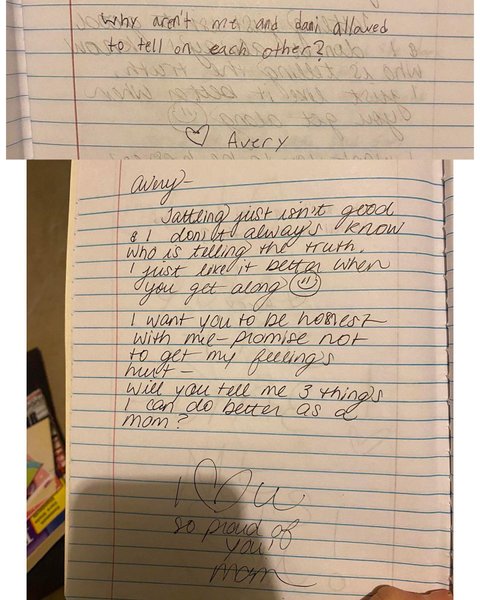 Why aren't me and dani allowed
to tell on each other?
♡ Avery
Avery-
Tattling just isn't good
& I don't always know
who is telling the truth.
I just like it better when
you get along ☺
I want you to be honest
with me - promise not
to get my feelings
hurt -
Will you tell me 3 things
I can do better as a
mom?
I ♡ U
so proud of
you!
mom